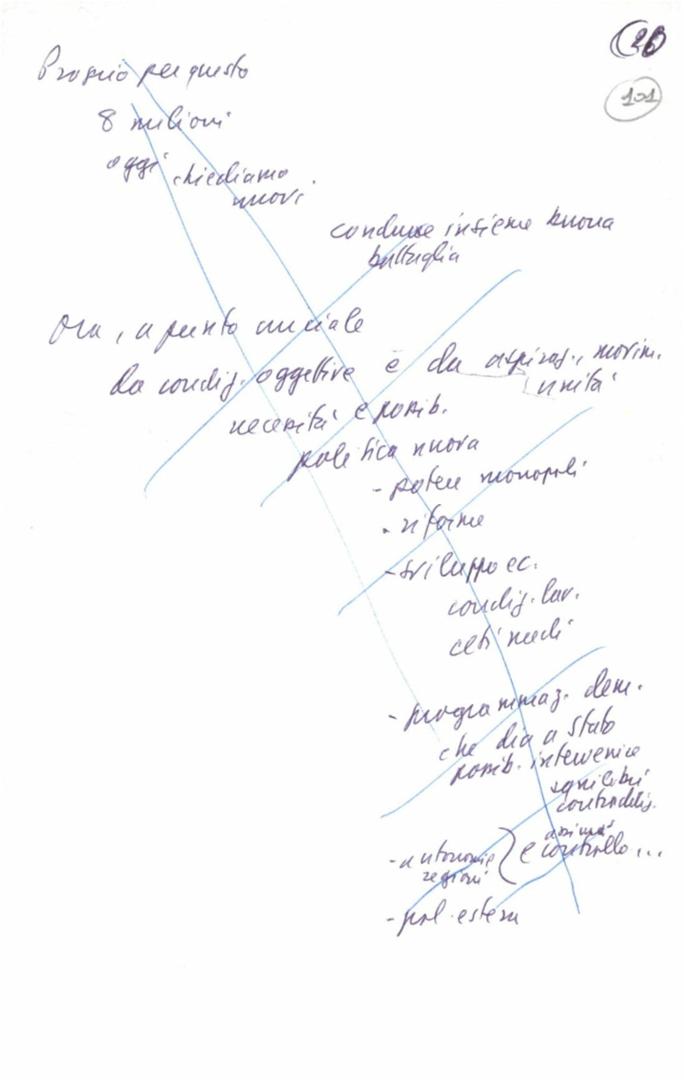 26
101
Proprio per questo
8 milioni
oggi chiediamo
nuovi.
condurre insieme nuova
battaglia
Ora, a punto cruciale
da condiz. oggettive e da aspiraz., movim.
unità
necessità e possib.
politica nuova
- potere monopoli
- riforme
- sviluppo ec.
condiz. lav.
ceti medi
- programmaz. dem.
che dia a Stato
possib. intervenire
squilibri
contraddiz.
- autonomie
regioni
e controllo...
- pol. estera